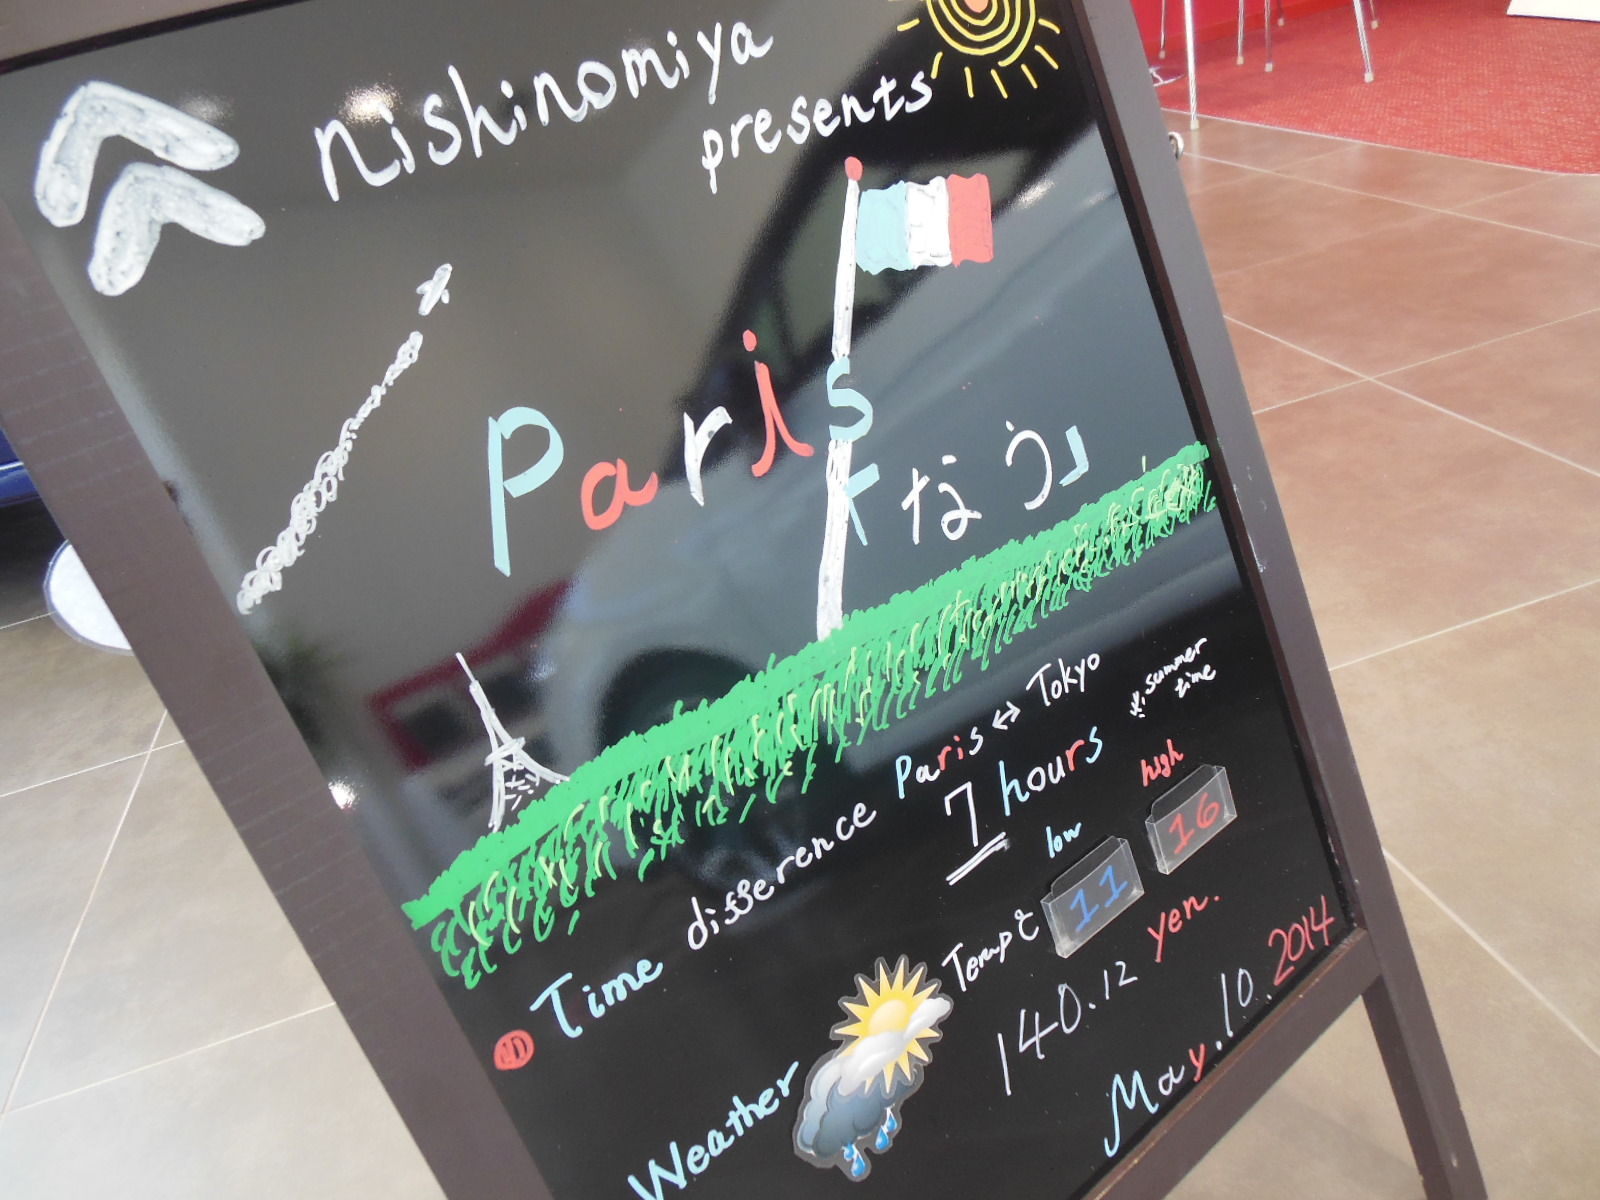 Nishinomiya
presents
Paris
くなう」
Time difference Paris ↔ Tokyo
7 hours
※ summer
time
Weather
Temp ℃
low
11
high
16
140.12 yen.
May.10.2014